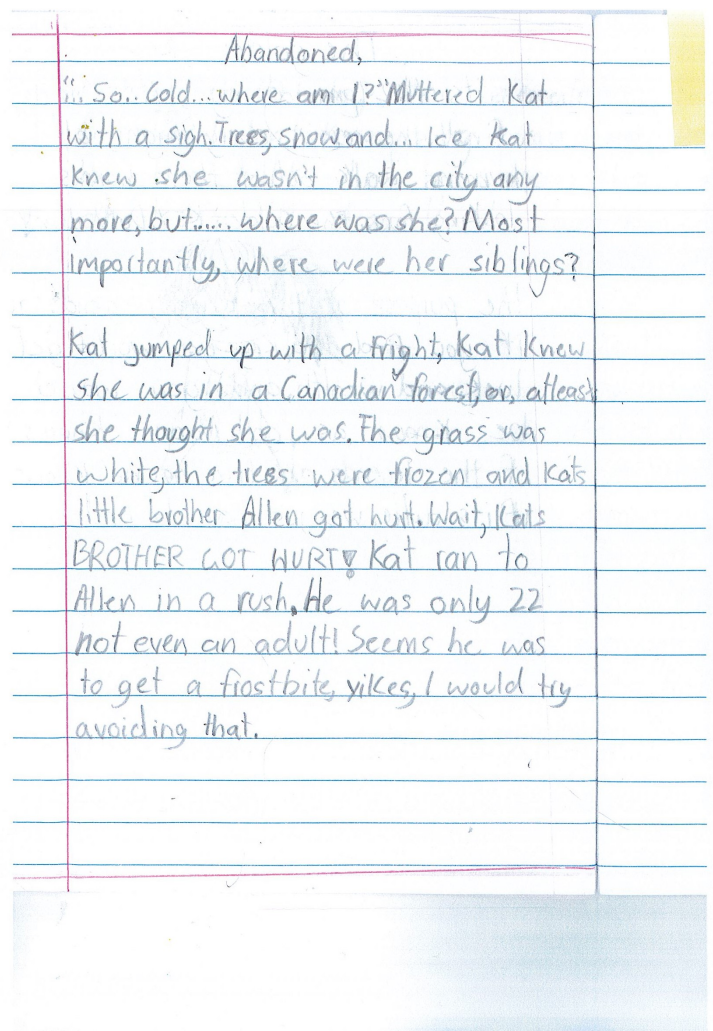 Abandoned,
"... So.. Cold... where am I?" Muttered Kat
with a sigh. Trees, snow and... Ice Kat
knew she wasn't in the city any
more, but...... where was she? Most
importantly, where were her siblings?
Kat jumped up with a fright, Kat knew
she was in a Canadian forest, or, atleast
she thought she was. The grass was
white, the trees were frozen and Kats
little brother Allen got hurt. Wait, Kats
BROTHER GOT HURT! Kat ran to
Allen in a rush. He was only 22
not even an adult! Seems he was
to get a frostbite, yikes, I would try
avoiding that.